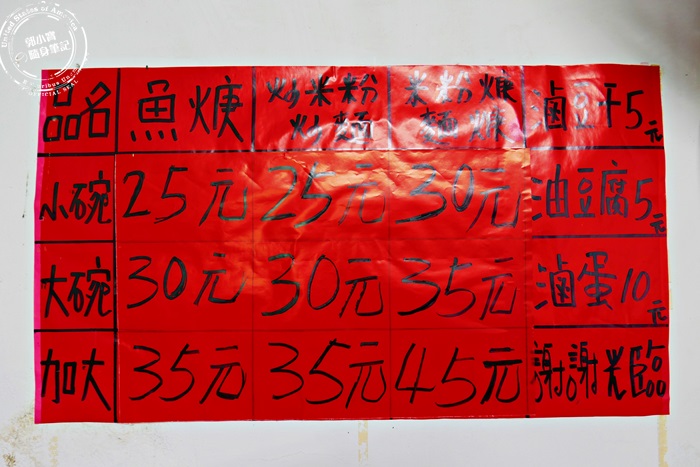 United States of America
郭小寶
隨身筆記
OFFICIAL SEAL
品名 魚焿 炒米粉 炒麵 米粉焿 麵焿 滷豆干5元
小碗 25元 25元 30元 油豆腐5元
大碗 30元 30元 35元 滷蛋10元
加大 35元 35元 45元 謝謝光臨